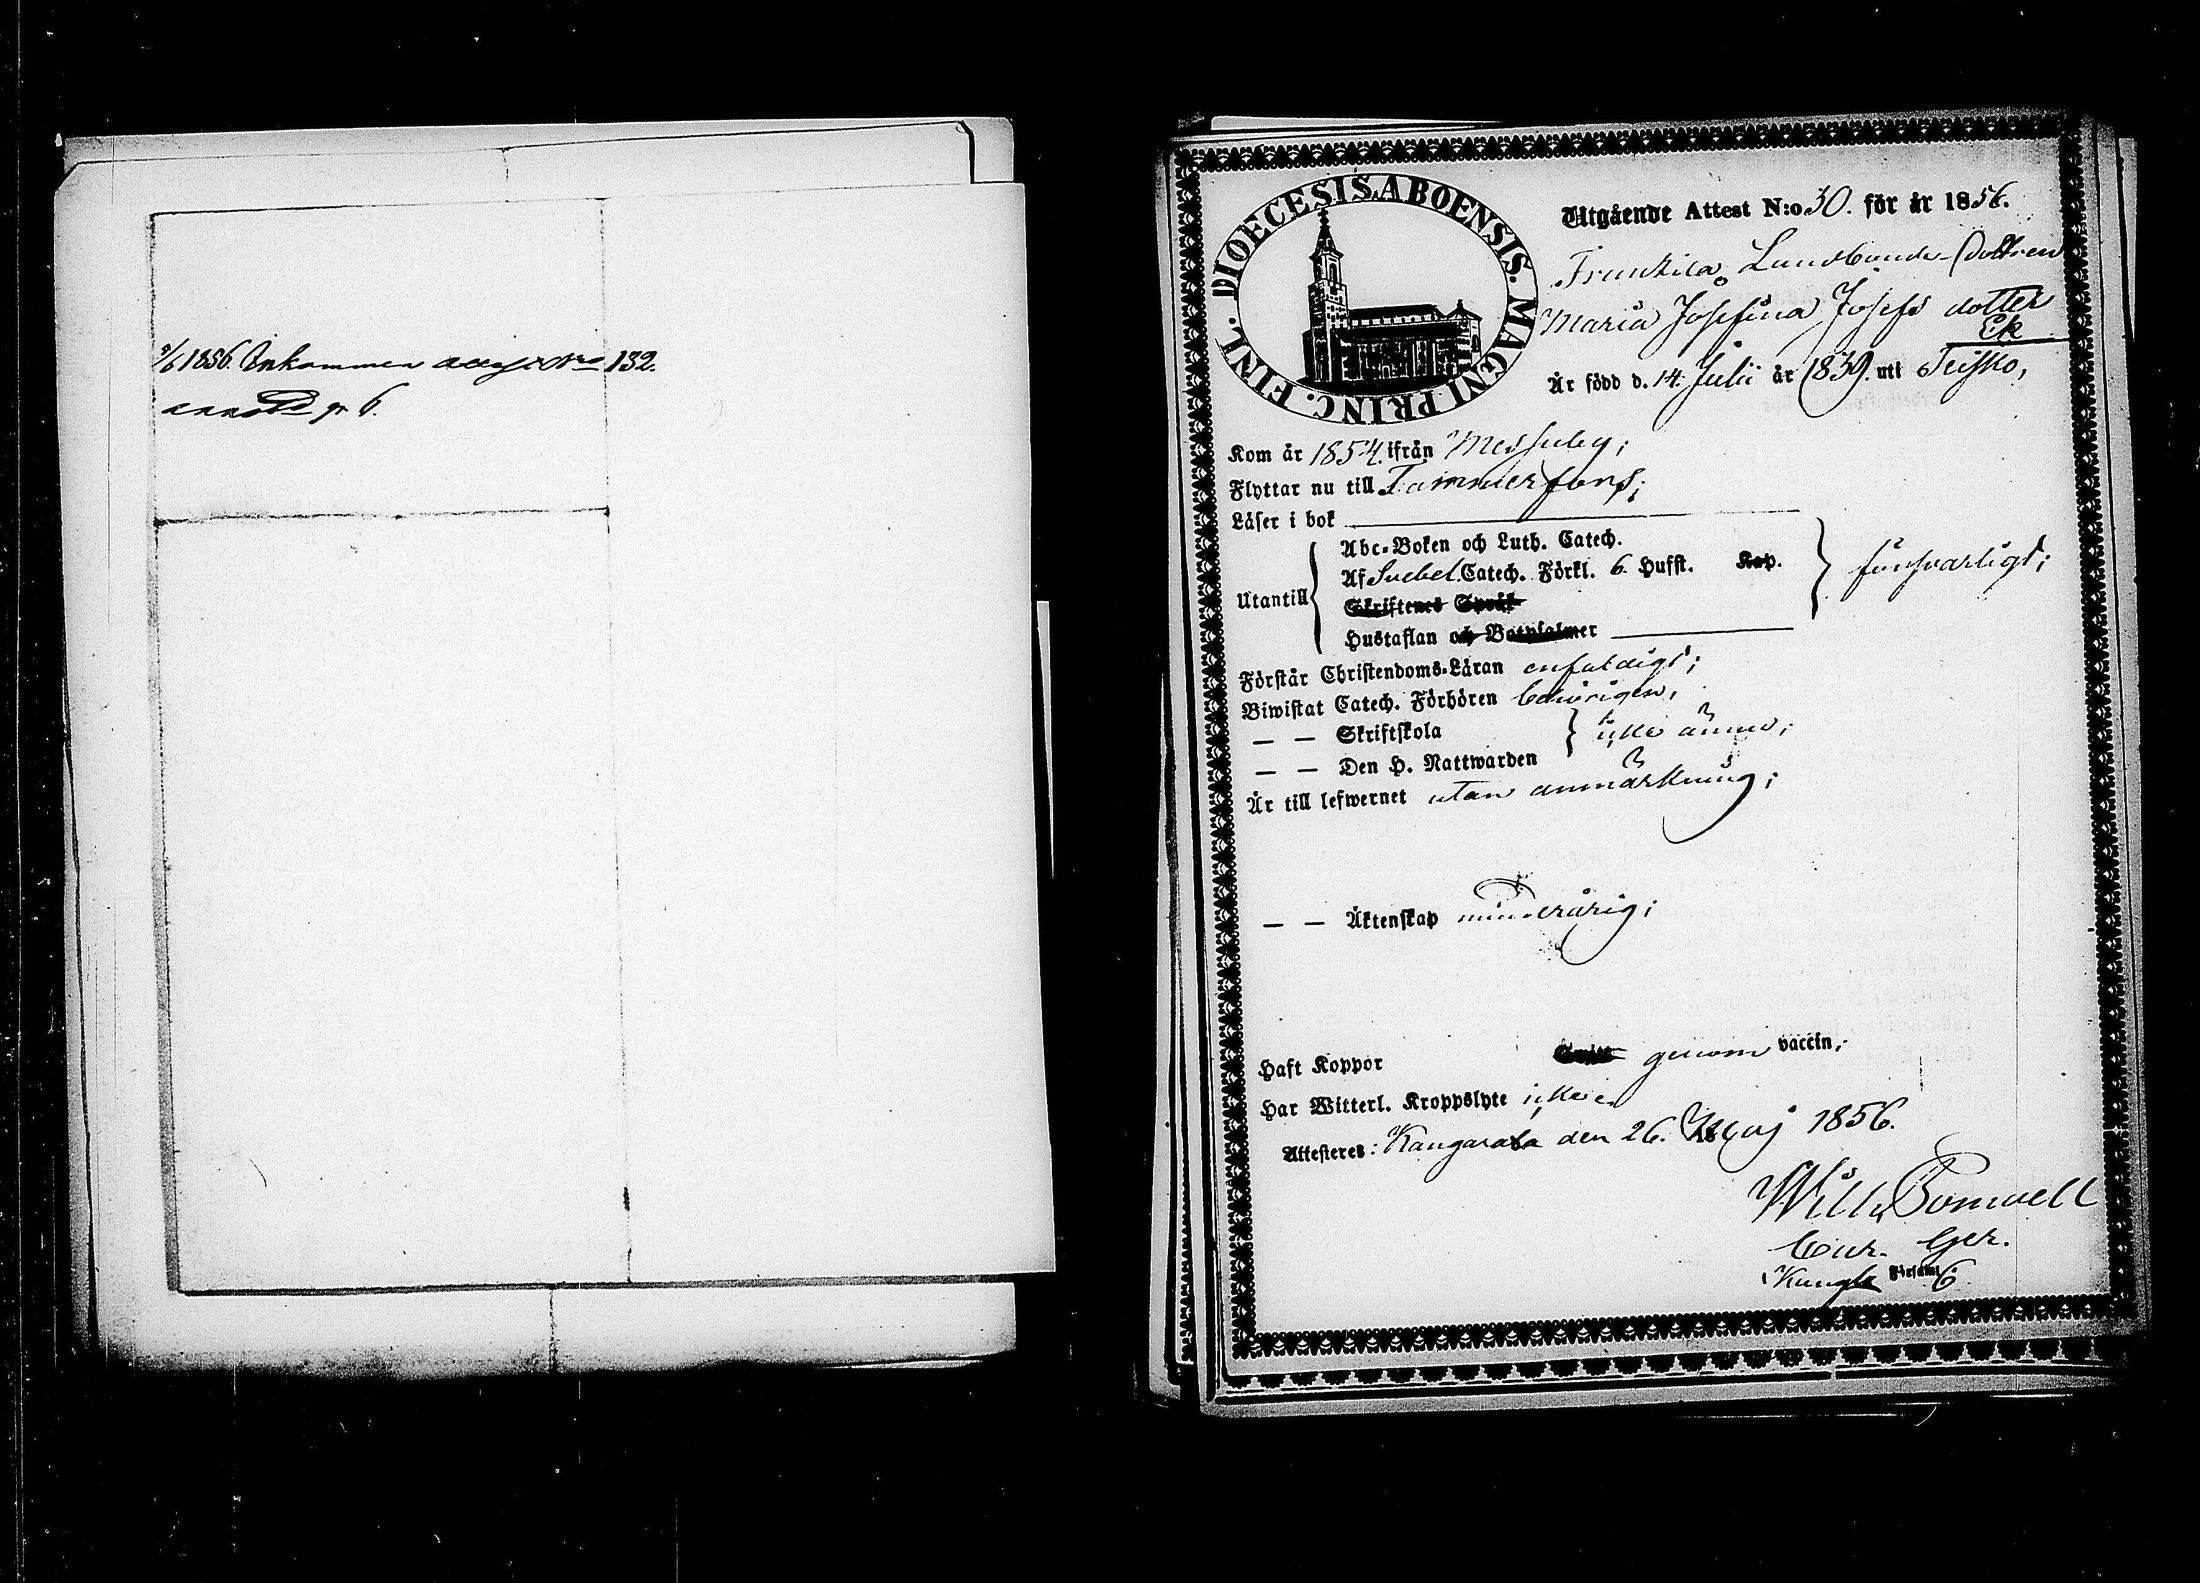 /6 1856. Inkommen attest Nro 132.
6.
DIOECESIS ABOENSIS. MAGNI PRINC. FINL.
Utgående Attest N:o 30. för år 1856.
Landbonde-Dottren
Maria Josefina Josefs dotter
Ek
Är född d. 14. Julii år 1839. uti Teisko,
Kom år 1854. ifrån Messuby;
Flyttar nu till Tammerfors;
Läser i bok
Abc-Boken och Luth. Catech.
Af Svebel. Catech. Förkl. 6. Hufst. Kap.
Utantill försvarligt;
Skriftenes Språk
Hustaflan och Botpsalmer
Förstår Christendoms-Läran enfaldigt;
Biwistat Catech. Förhören behörigen,
— — Skriftskola
icke ännu;
— — Den H. Nattwarden
Är till lefwernet utan anmärkning;
— — Äktenskap minderårig;
Haft Koppor genom vaccin;
Har Witterl. Kroppslyte icke
Attesteras: Kangasala den 26. Maj 1856.
Will Bomvell
Förs:aml.